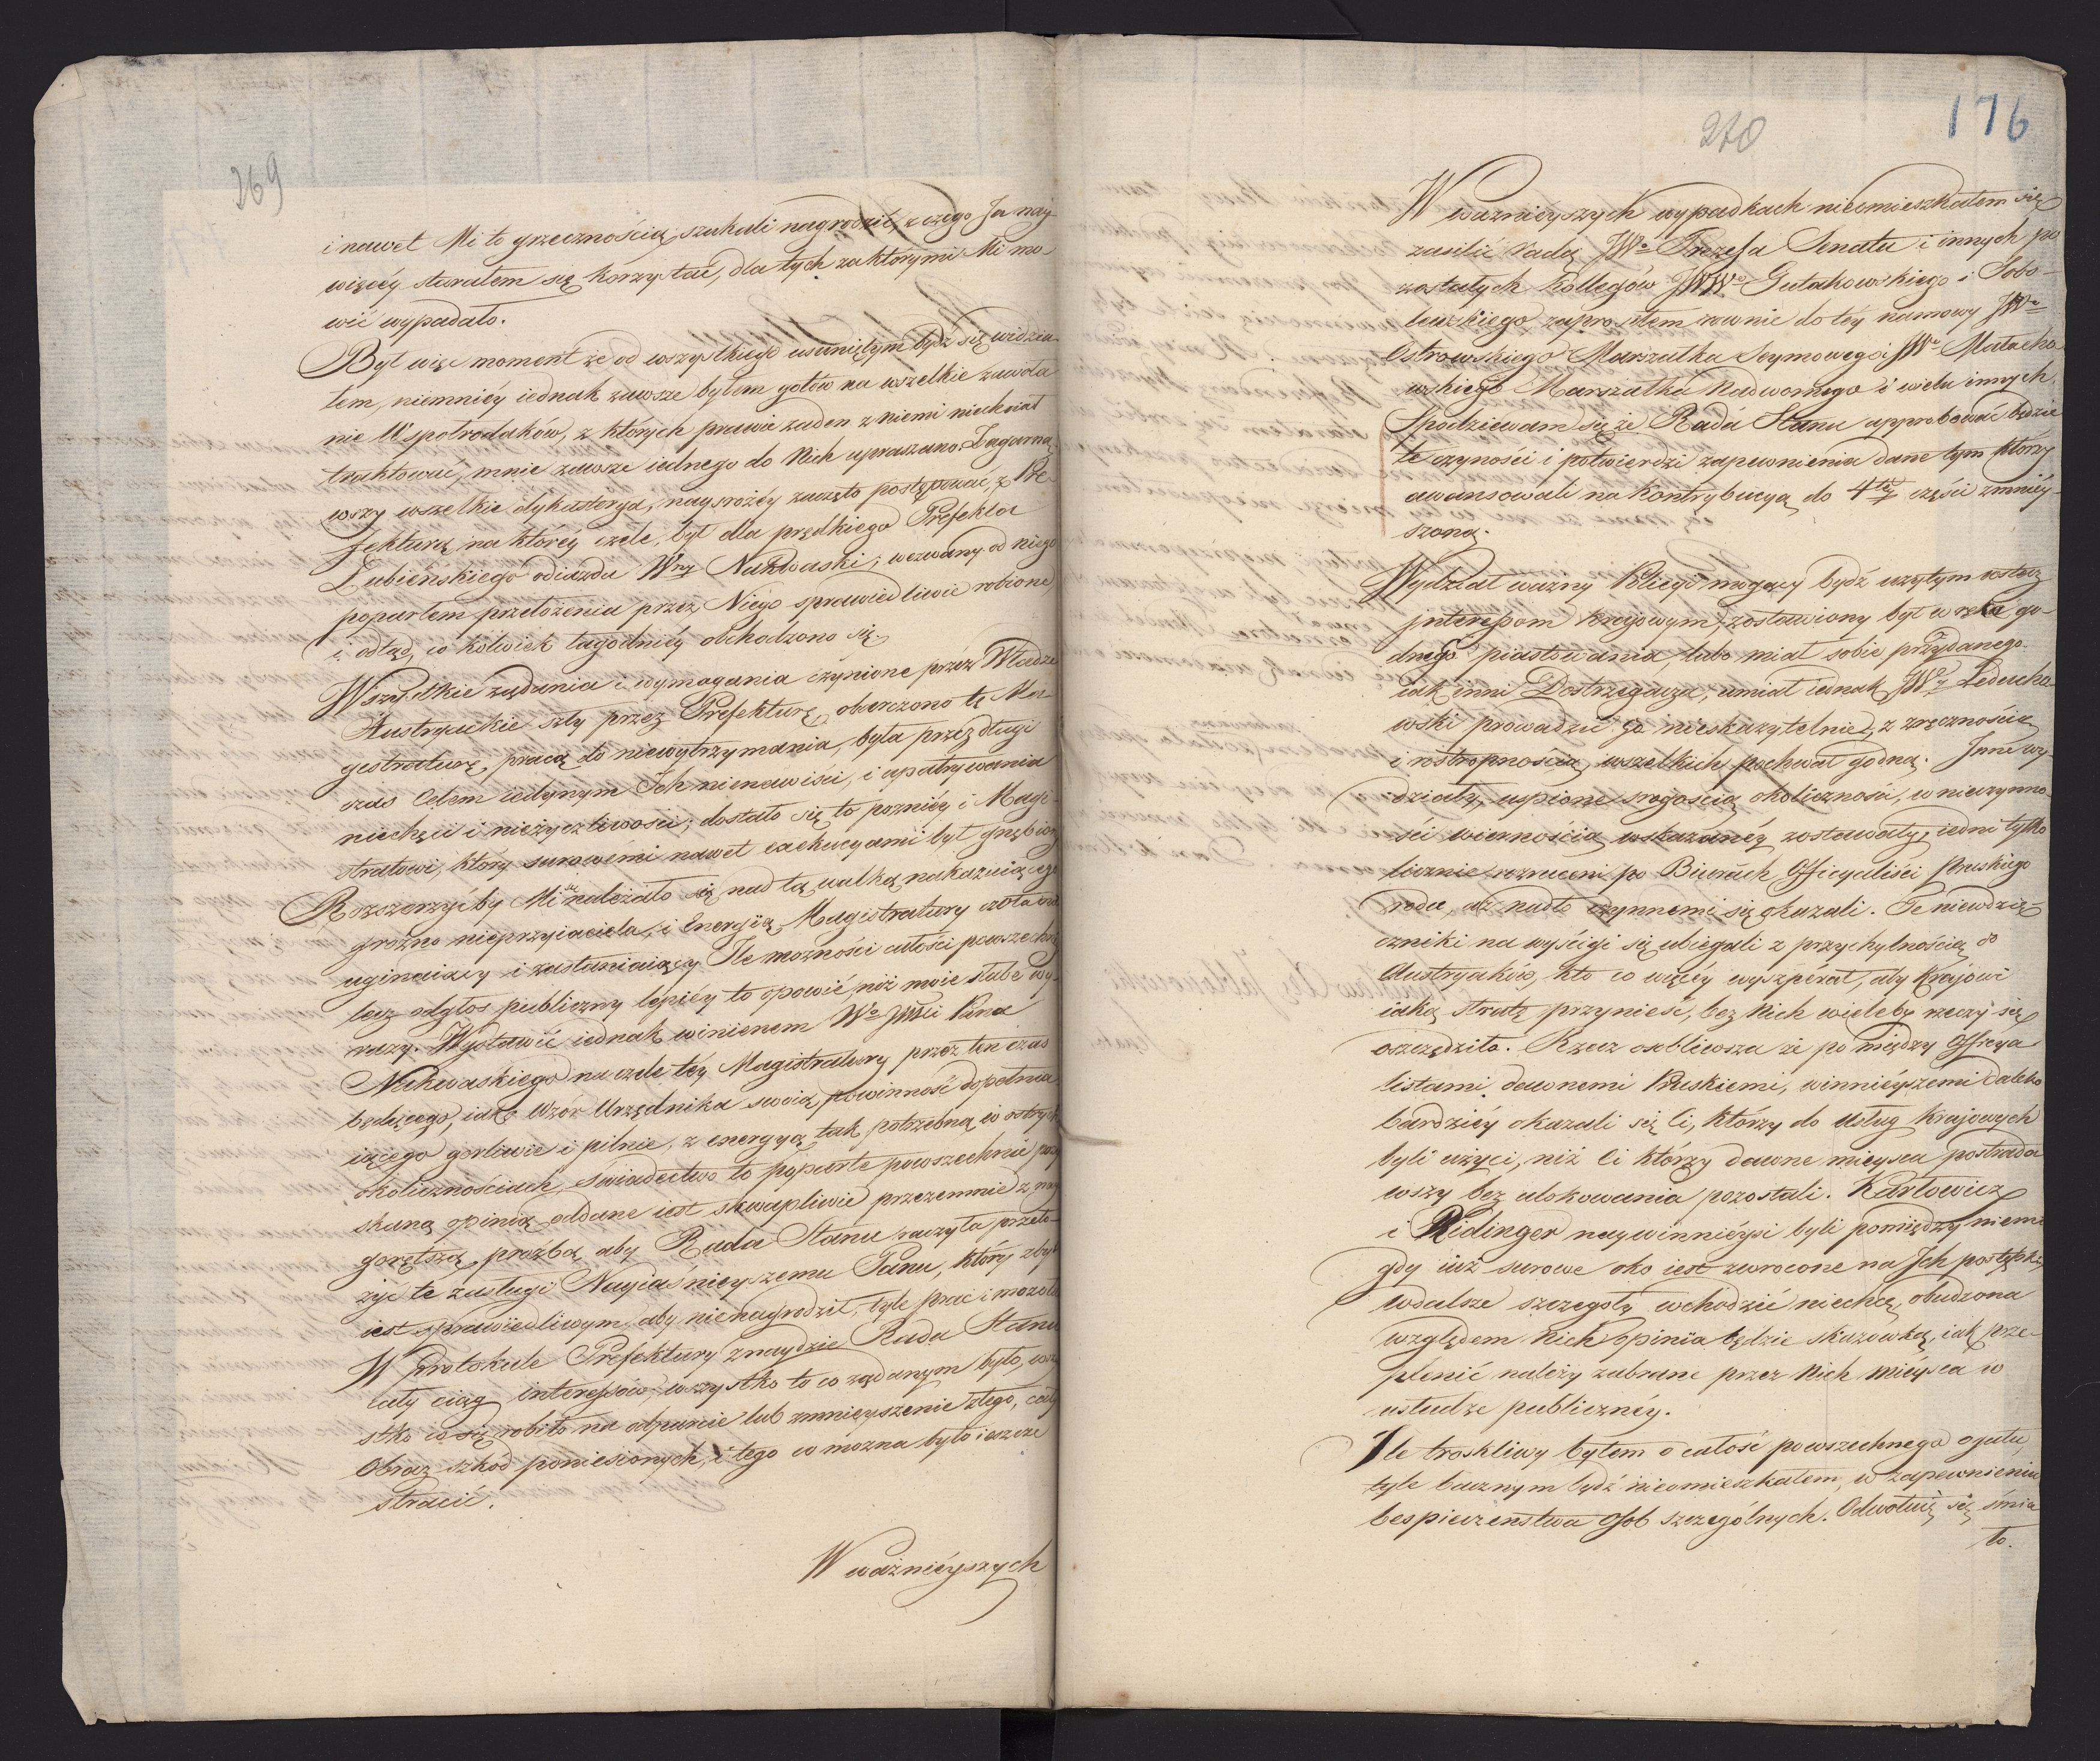 269
i nawet Mi to grzecznością szukali nagrodzić, z czego Ja nay-
więcéy starałem się korzystać, dla tych za którymi Mi mo-
wić wypadało.
Był więc moment że od wszystkiego usuniętym bydź się widzia-
łem, niemniéy iednak zawsze byłem gotów na wszelkie zawoła
nie Współrodaków, z których prawie żaden z niemi niechciał
traktować, mnie zawsze iednego do Nich upraszano. Zagarną
wszy wszelkie dykasterya, naysrożéy zaczęto postępować, z Pre-
fekturą na któréy czele, był dla prędkiego Prefekta
Łubieńskiego odiazdu Wny Nakwaski; wezwany od niego
poparłem przełożenia przez Niego sprawiedliwie robione,
i odtąd, co kolwiek łagodniéy obchodzono się.
Wszystkie żądania i wymagania czynione przez Władze
Austryackie szły przez Prefekturę, obarczono tę Ma-
gestraturę, pracą do niewytrzymania, była przez długi
czas Celem iedynym Ich nienawiści, i upatrywania
niechęci i nieżyczliwości; dostało się to poźniéy i Magi-
stratowi, który surowémi nawet exekucyami był gnębiony
Rozszerzyćby Mi się należało nad tą walką nakazuiącego
groźno nieprzyiaciela, i Energią Magistratury czoła nie
uginaiącey i zasłaniaiącey Ile możności całości powszechnéy
lecz odgłos publiczny lepiéy to opowié, niż moie słabe wy-
razy. Wystawić iednak winienem Wo JWli Pana
Nakwaskiego na czele téy Magistratury przez ten czas
będącego, iako Wzór Urzędnika swoią powinność dopełnia
iącego gorliwie i pilnie, z energyą tak potrzebną w ostrych
okolicznościach, świadectwo to poparte powszechnie pozy
skaną opinią oddane iest skwapliwie przezemnie z nay
gorętszą prożbą aby Rada Stanu raczyła przeło-
żyć te zasługi Nayiaśnieyszemu Panu, który zbyt
iest sprawiedliwym, aby nienagrodził, tyle prac i mozołu
W Protokule Prefektury znaydzie Rada Stanu
cały ciąg interessów, wszystko to co żądanym było, wszy
stko co się robiło na odparcie lub zmnieyszenie złego, cały
Obraz szkód poniesionych, i tego co można było ieszcze
stracić.
W ważniéyszych
270
176
W ważniéyszych wypadkach nieomieszkałem się
zasilić radą JWo Prezesa Senatu i innych po
zostałych Kollegów JWWo Gutakowskiego i Sobo-
lewskiego, zaprosiłem rownie do téy namowy JWo
Ostrowskiego Marszałka Seymowego i JWo Małacho
wskiego Marszałka Nadwornego i wielu innych,
Spodziewam się że Rada Stanu approbować będzie
te czynności i potwierdzi zapewnienia dane tym którzy
awansowali na Kontrybucyą do 4téy części zmniéy-
szoną.
Wydział ważny Policyi mogący bydź użytym ostrzey
interessom Krajowym, zostawiony był w ręku go-
dnego piastowania, lubo miał sobie przydanego
iak inni Dostrzegacza, umiał iednak JWy Leduchо
wski prowadzić go nieskazytelnie, z zręcznością
i rostropnością wszelkich pochwał godną. Inne wy-
działy, uśpione srogością okoliczności, w nieczynno-
ści wiernością wskazanéy zostawały, iedni tylko
licznie rozrzuceni po Biurach Officyaliści Pruskiego
rodu, aż nadto czynnemi się okazali. Te niewdzię-
czniki na wyścigi się ubiegali z przychylnością do
Austryaków, kto co więcéy wyszpérał, aby Krajowi
iaką stratę przynieść, bez Nich wieleby rzeczy się
oszczędziło. Rzecz osobliwsza że po między Officya-
listami dawnemi Pruskiemi, winniéyszemi daleko
bardziéy okazali się Ci, którzy do Usług Krajowych
byli użyci, niż Ci którzy dawne mieysca postrada
wszy bez ulokowania pozostali. Karłowicz
i Ridinger naywinniéysi byli pomiędzy niemi
gdy iuż surowe oko iest zwrocone na Ich postępki,
wdalsze szczegoły wchodzić niechcę, obudzona
względem Nich Opinia będzie skazowką, iak prze-
plenić należy zabrane przez Nich miéysca w
usłudze publicznéy.
Ile troskliwy byłem o całość powszechnego ogułu,
tyle bacznym bydź nieomieszkałem, w zapewnieniu
bespieczeństwa Osob szczególnych. Odwołuię się śmia-
ło.